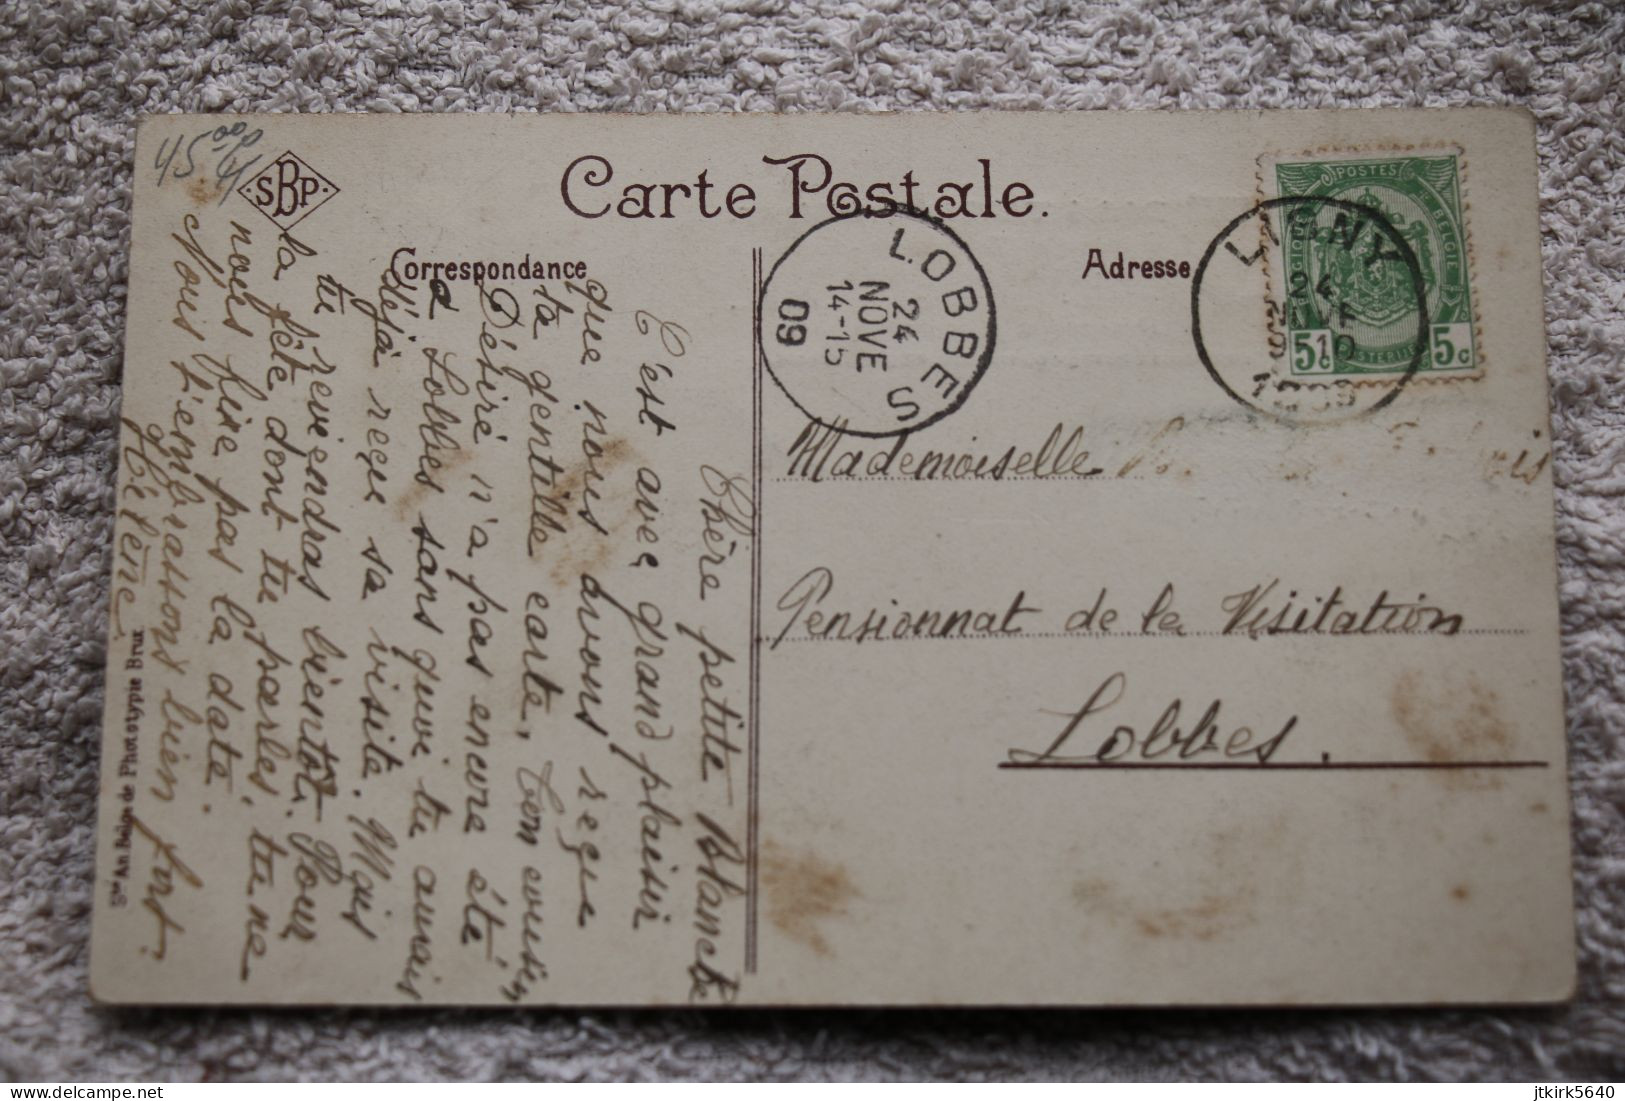 45.00
SBP
Carte Postale.
Correspondance
Adresse
LOBBES
24
NOVE
14-15
09
LIGNY
24
10
POSTES
5c
5c
Mademoiselle
Pensionnat de la Visitation
Lobbes.
Chère petite Blanche
C'est avec grand plaisir
que nous avons reçu
ta gentille carte. Ton cousin
Désiré n'a pas encore été
à Lobbes sans quoi tu aurais
déjà reçu sa visite. Mais
tu reviendras bientôt. Pour
la fête dont tu parles, tu ne
nous fixe pas la date.
Nous t'embrassons bien fort.
Hélène
Sté An. Belge de Phototypie Brux.
Delcampe.net
jtkirk5640